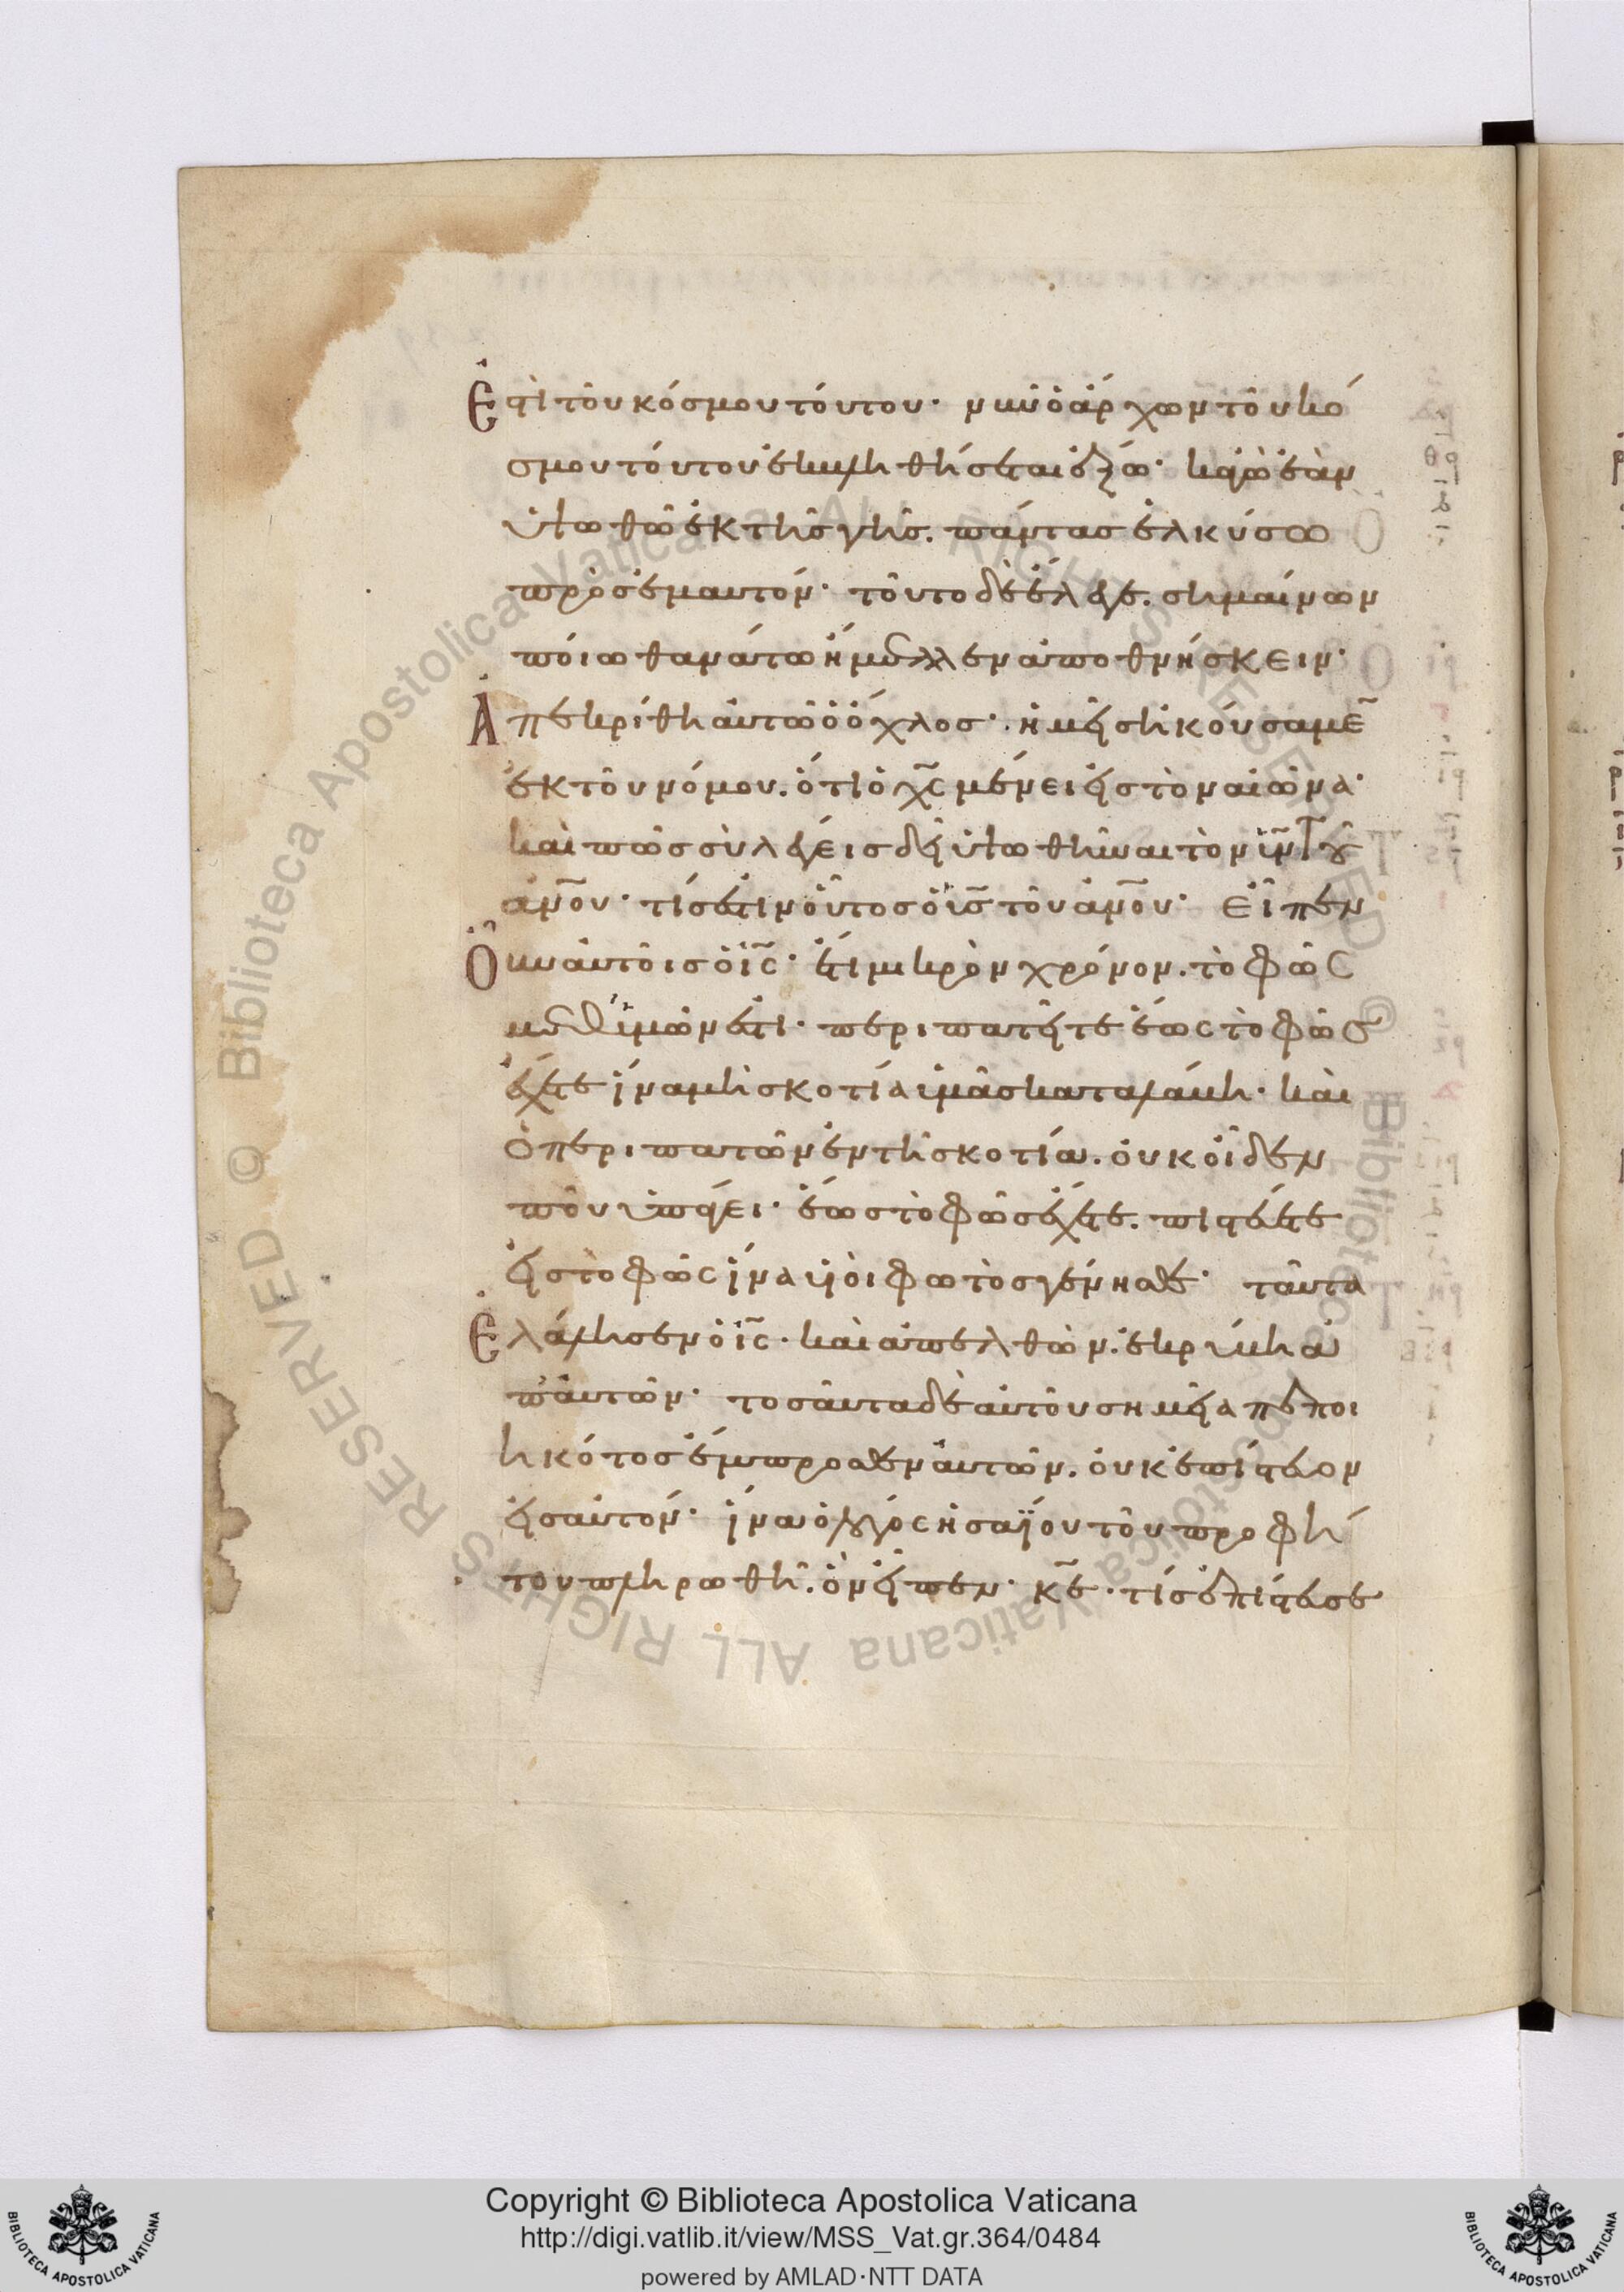 Ἐστὶ τοῦ κόσμου τούτου· νῦν ὁ ἄρχων τοῦ κό
σμου τούτου ἐκβληθήσεται ἔξω· κἀγὼ ἐὰν
ὑψωθῶ ἐκ τῆς γῆς. πάντας ἑλκύσω
πρὸς ἐμαυτόν· τοῦτο δὲ ἔλεγε. σημαίνων
ποίω θανάτω ἤμελλεν ἀποθνήσκειν·
Ἀπεκρίθη αὐτῶ ὁ ὄχλος· ἡμεῖς ἠκούσαμε̄
ἐκ τοῦ νόμου. ὅτι ὁ χ̅ς̅ μένει εἰς τὸν αἰῶνα·
καὶ πῶς σὺ λέγεις δεῖ ὑψωθῆναι τὸν υ̅ν̅ τοῦ
α̅ν̅ο̅υ̅· τίς ἐστιν οὗτος ὁ υ̅ς̅ τοῦ α̅ν̅ο̅υ̅· εἶπεν
Οὖν αὐτοῖς ὁ ι̅ς̅· ἔτι μικρὸν χρόνον. τὸ φῶς
μεθ' ὑμῶν ἐστι· περιπατεῖτε ἕως τὸ φῶς
ἔχετε ἵνα μὴ σκοτία ὑμᾶς καταλάβη· καὶ
ὁ περιπατῶν ἐν τῆ σκοτία. οὐκ οἶδεν
ποῦ ὑπάγει· ἕως τὸ φῶς ἔχετε. πιστεύετε
εἰς τὸ φῶς ἵνα υἱοὶ φωτὸς γένησθε· ταῦτα
Ἐλάλησεν ὁ ι̅ς̅· καὶ ἀπελθὼν. ἐκρύβη ἀ
π' αὐτῶν· τοσαῦτα δὲ αὐτοῦ σημεῖα πεποι
ηκότος ἔμπροσθεν αὐτῶν. οὐκ ἐπίστευον
εἰς αὐτόν· ἵνα ὁ λόγος ἡσαΐου τοῦ προφή
του πληρωθῆ. ὃν εἶπεν· κ̅ε̅· τίς ἐπίστευσε
Copyright © Biblioteca Apostolica Vaticana
http://digi.vatlib.it/view/MSS_Vat.gr.364/0484
powered by AMLAD·NTT DATA
BIBLIOTECA APOSTOLICA VATICANA
BIBLIOTECA APOSTOLICA VATICANA
© Biblioteca Apostolica Vaticana ALL RIGHTS RESERVED © Biblioteca Apostolica Vaticana ALL RIGHTS RESERVED